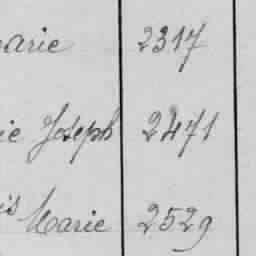 arie 2317
ie Joseph 2471
is Marie 2529